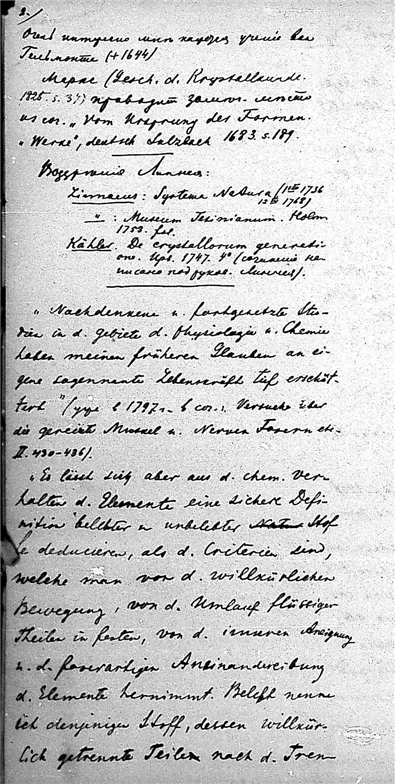 2./
Очень интересно мне кажется учение Ван
Гельмонта (+ 1644)
Маркс (Gesch. d. Krystallkunde.
1825. S. 37) приводит замеч. место
из соч. „Vom Ursprung der Formen.
„Werke", deutsch Sulzbach 1683. S. 189.
Воззрения Линнея:
Linnaeus: Systema Natura (1te 1736
12te 1768)
" : Museum Tessinianum. Holm
1753. fol.
Kähler. De crystallorum generati-
one. Ups. 1747. 4° (сочинение на-
писано под руков. Линнея).
„Nachdenkene u. fortgesetzte Stu-
dien in d. gebiete d. Physiologie u. Chemie
haben meinen früheren Glauben an ei-
gene sogennante Lebenskräft tief erschüt-
tert" (уже в 1797 г. в соч.: Versuche über
die gereizte Muskel u. Nerven Fasern etc.
II. 430-436).
„Es lässt sich aber aus d. chem. Ver-
halten d. Elemente eine sichere Defi-
nition belebter u unbelebter Stof
fe deducieren, als d. Criterien sind,
welche man von d. willkürlichen
Bewegung, von d. Umlauf flüssiger
Theilen in festen, von d. inneren Aneignung
u. d. faserartigen Aneinanderreihung
d. Elemente hernimmt. Belebt nenne
ich denjenigen Stoff, dessen willkür-
lich getrennte Teilen nach d. Tren-